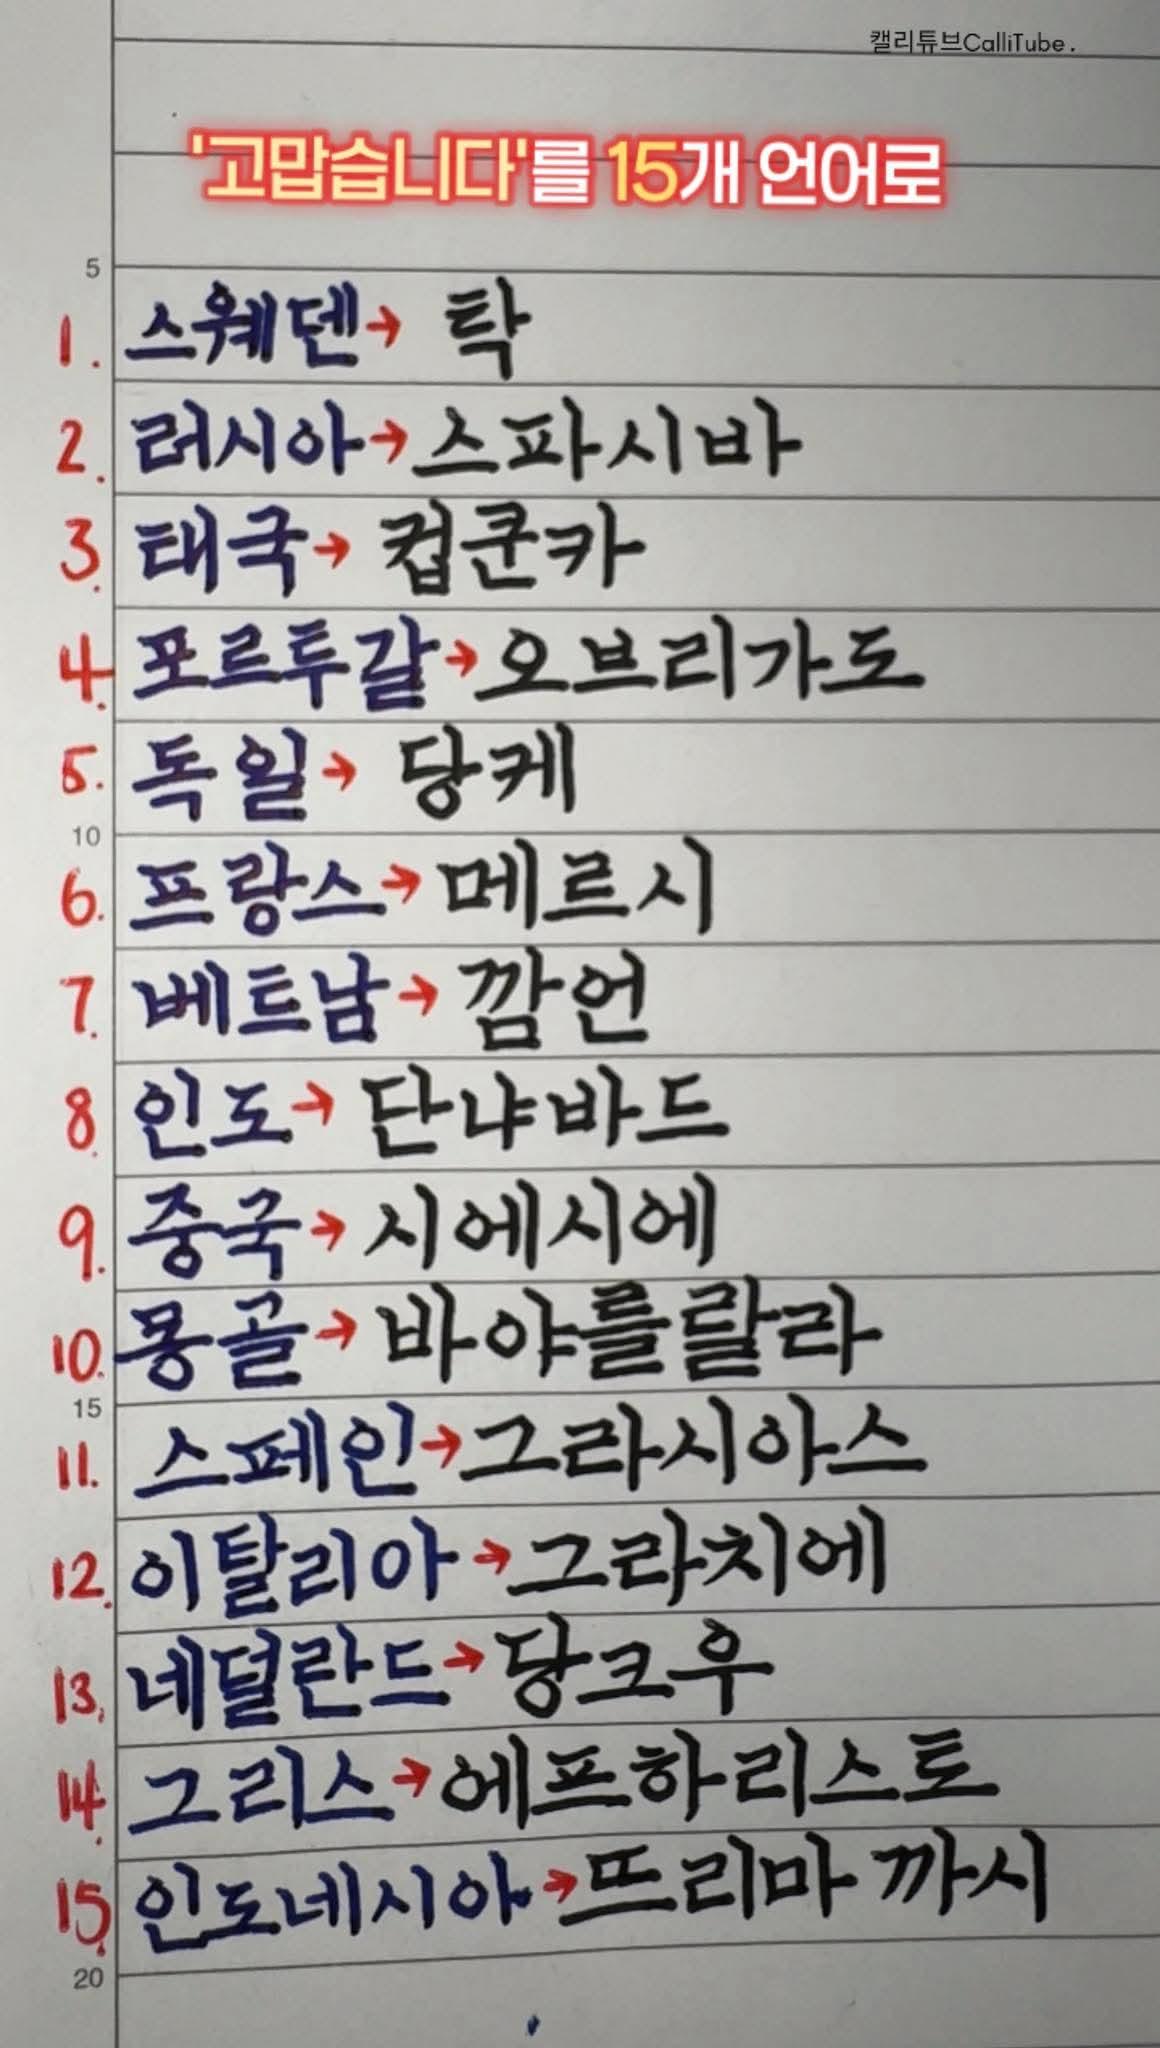 캘리튜브CalliTube.
'고맙습니다'를 15개 언어로
5
1. 스웨덴→ 탁
2. 러시아→스파시바
3. 태국→ 컵쿤카
4. 포르투갈→오브리가도
5. 독일→ 당케
10
6. 프랑스→메르시
7. 베트남→ 깜언
8. 인도→ 단냐바드
9. 중국→ 시에시에
10. 몽골→ 바야를랄라
15
11. 스페인→그라시아스
12. 이탈리아→그라치에
13. 네덜란드→당크우
14. 그리스→에프하리스토
15. 인도네시아→뜨리마 까시
20